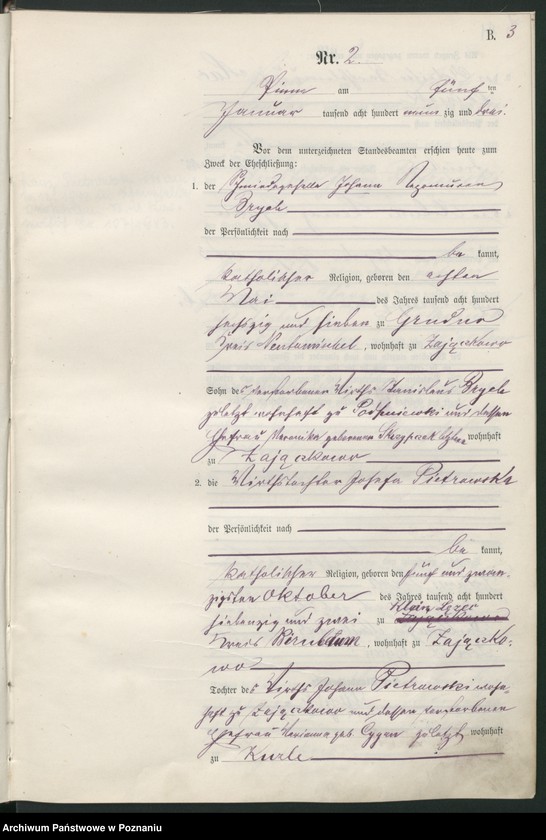 B. 3
Nr. 2.
Pinne am fünften
Januar tausend acht hundert neunzig und drei.
Vor dem unterzeichneten Standesbeamten erschien heute zum
Zweck der Eheschließung:
1. der Schmiedegeselle Johann Nepomucen
Bryol
der Persönlichkeit nach
be kannt,
katholischer Religion, geboren den achten
Mai des Jahres tausend acht hundert
sechszig und sieben zu Grudno
Kreis Neutomischel, wohnhaft zu Zajączkowo
Sohn des verstorbenen Wirths Stanislaus
zuletzt wohnhaft zu und dessen
Ehefrau Veronika geborenen wohnhaft
zu Zajączkowo
2. die Wirthstochter Josefa Pietrowska
der Persönlichkeit nach
be kannt,
katholischer Religion, geboren den fünf und zwan-
zigsten Oktober des Jahres tausend acht hundert
siebenzig und zwei zu Klein
Kreis Birnbaum, wohnhaft zu Zajączko-
wo
Tochter des Wirths Johann Pietrowski wohn-
haft zu Zajączkowo und dessen verstorbenen
Ehefrau Marianna geb Cygan zuletzt wohnhaft
zu Kurle
Archiwum Państwowe w Poznaniu